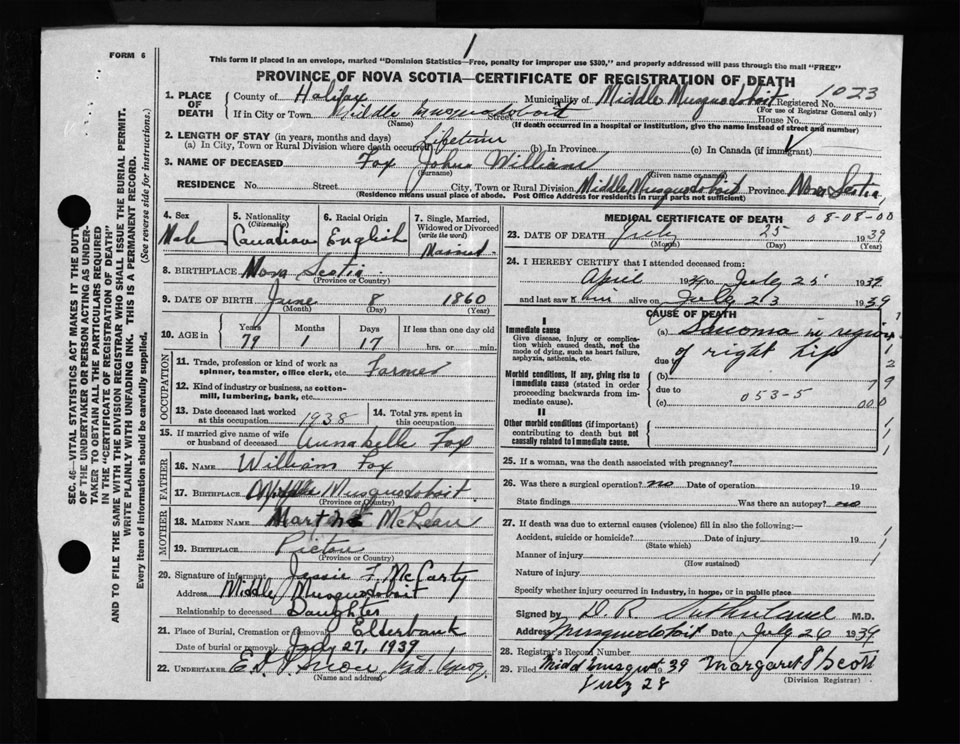 1
FORM 6
This form if placed in an envelope, marked "Dominion Statistics—Free, penalty for improper use $300," and properly addressed will pass through the mail "FREE"
PROVINCE OF NOVA SCOTIA—CERTIFICATE OF REGISTRATION OF DEATH
1. PLACE OF DEATH
County of Halifax Municipality of Middle Musquodoboit Registered No. 1023
(For use of Registrar General only)
If in City or Town Middle Musquodoboit Street House No.
(Name) (If death occurred in a hospital or Institution, give the name instead of street and number)
2. LENGTH OF STAY (in years, months and days)
(a) In City, Town or Rural Division where death occurred Lifetime (b) In Province (c) In Canada (if immigrant)
3. NAME OF DECEASED Fox John William
(Surname) (Given name or names)
RESIDENCE No. Street City, Town or Rural Division Middle Musquodoboit Province Nova Scotia
(Residence means usual place of abode. Post Office Address for residents in rural parts not sufficient)
4. Sex Male
5. Nationality (Citizenship) Canadian
6. Racial Origin English
7. Single, Married, Widowed or Divorced (write the word) Married
8. BIRTHPLACE Nova Scotia
(Province or Country)
9. DATE OF BIRTH June 8 1860
(Month) (Day) (Year)
10. AGE in Years Months Days If less than one day old
79 1 17 hrs. or min.
OCCUPATION
11. Trade, profession or kind of work as spinner, teamster, office clerk, etc. Farmer
12. Kind of industry or business, as cotton-mill, lumbering, bank, etc.
13. Date deceased last worked at this occupation 1938
14. Total yrs. spent in this occupation
15. If married give name of wife or husband of deceased Annabelle Fox
FATHER
16. NAME William Fox
17. BIRTHPLACE Middle Musquodoboit
(Province or Country)
MOTHER
18. MAIDEN NAME Martha McLean
19. BIRTHPLACE Pictou
(Province or Country)
20. Signature of informant Jessie F. McCarty
Address Middle Musquodoboit
Relationship to deceased Daughter
21. Place of Burial, Cremation or Removal Elderbank
Date of burial or removal July 27, 1939
22. UNDERTAKER
(Name and address)
MEDICAL CERTIFICATE OF DEATH 08-08-00
23. DATE OF DEATH July 25 1939
(Month) (Day) (Year)
24. I HEREBY CERTIFY that I attended deceased from:
April 1939 to July 25 1939
and last saw him alive on July 23 1939
CAUSE OF DEATH
I
Immediate cause
Give disease, injury or complication which caused death, not the mode of dying, such as heart failure, asphyxia, asthenia, etc.
(a) Sarcoma in region of right hip
due to
Morbid conditions, if any, giving rise to immediate cause (stated in order proceeding backwards from immediate cause).
(b)
due to 053-5
(c)
II
Other morbid conditions (if important) contributing to death but not causally related to immediate cause.
1
1
2
79
000
1
1
1
25. If a woman, was the death associated with pregnancy?
26. Was there a surgical operation? no Date of operation 19
State findings Was there an autopsy? no
27. If death was due to external causes (violence) fill in also the following:—
Accident, suicide or homicide? Date of injury 19
(State which)
Manner of injury
(How sustained)
Nature of injury
Specify whether injury occurred in industry, in home, or in public place
Signed by D. R. Sutherland M.D.
Address Musquodoboit Date July 26 1939
28. Registrar's Record Number
29. Filed Midd Musquod 1939 Margaret Scott
July 28 (Division Registrar)
SEC. 46—VITAL STATISTICS ACT MAKES IT THE DUTY
OF THE UNDERTAKER OR PERSON ACTING AS UNDER-
TAKER TO OBTAIN ALL THE PARTICULARS REQUIRED
IN THE "CERTIFICATE OF REGISTRATION OF DEATH"
AND TO FILE THE SAME WITH THE DIVISION REGISTRAR WHO SHALL ISSUE THE BURIAL PERMIT.
WRITE PLAINLY WITH UNFADING INK. THIS IS A PERMANENT RECORD.
Every item of information should be carefully supplied. (See reverse side for instructions.)